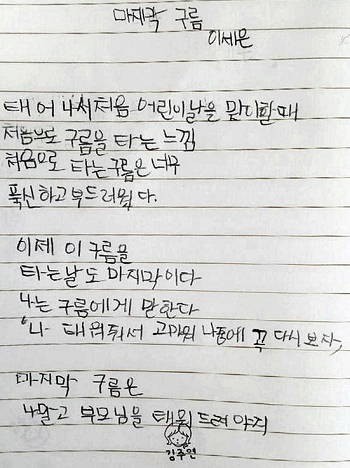 마지막 구름
이세은
태어나서 처음 어린이날을 맞이할 때
처음으로 구름을 타는 느낌
처음으로 타는 구름은 너무
푹신하고 부드러웠다.
이제 이 구름을
타는 날도 마지막이다
나는 구름에게 말한다
"나 태워줘서 고마워 나중에 꼭 다시 보자,
마지막 구름은
나말고 부모님을 태워 드려야지
김주연